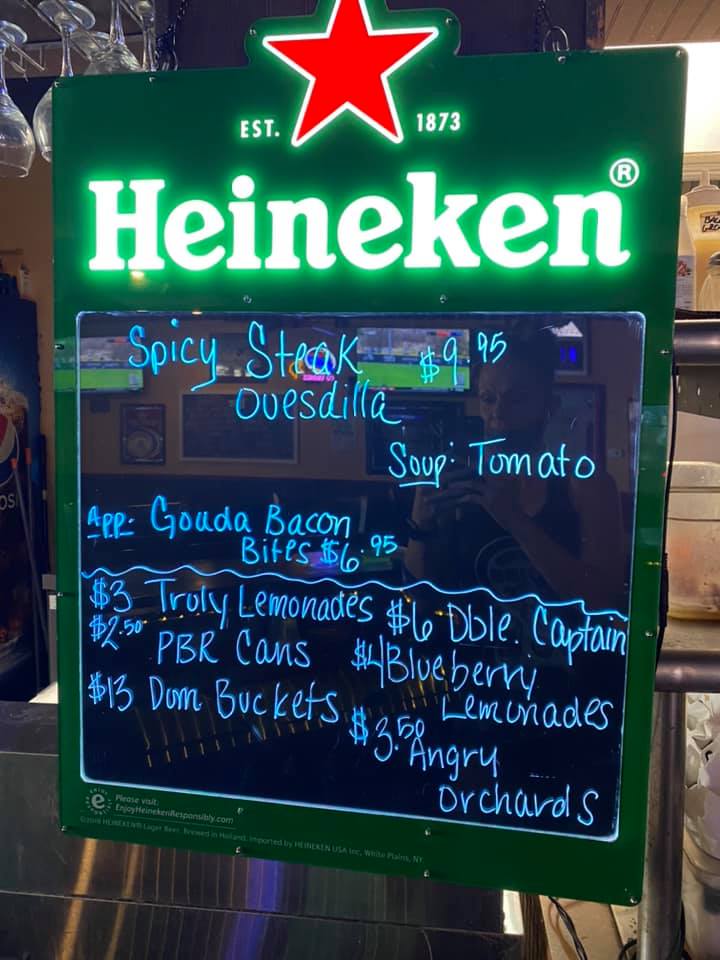 EST. 1873
Heineken®
Spicy Steak $9.95
Quesdilla
Soup: Tomato
App: Gouda Bacon
Bites $6.95
$3 Truly Lemonades
$2.50 PBR Cans
$13 Dom Buckets
$6 Dble. Captain
$4 Blueberry
Lemonades
$3.50 Angry
Orchards
Please visit:
EnjoyHeinekenResponsibly.com
©2018 HEINEKEN® Lager Beer. Brewed in Holland. Imported by HEINEKEN USA Inc. White Plains, NY.